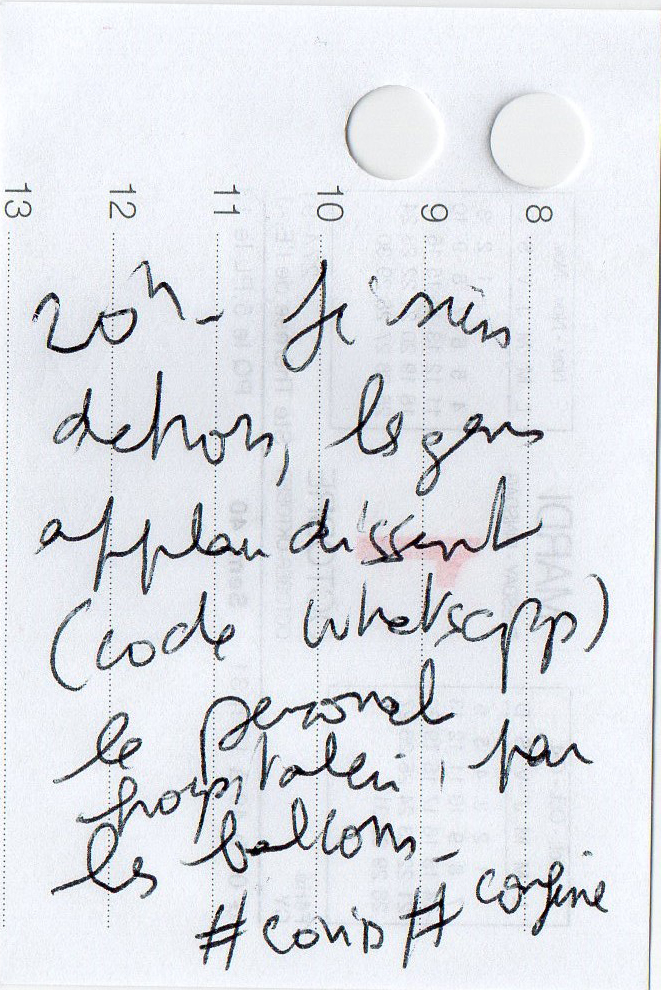 13 12 11 10 9 8
20h - Je suis
dehors, les gens
applaudissent
(code whatsapp)
le personnel
hospitalier, par
les balcons -
#covid #confiné